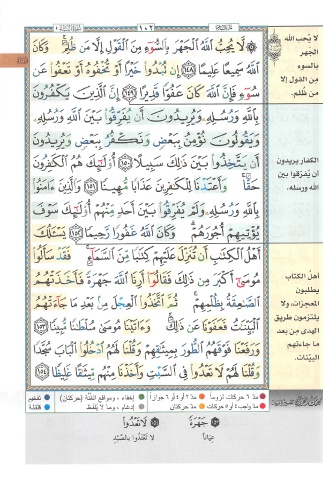 ١٠٢
لَّا يُحِبُّ ٱللَّهُ ٱلْجَهْرَ بِٱلسُّوٓءِ مِنَ ٱلْقَوْلِ إِلَّا مَن ظُلِمَ ۚ وَكَانَ
ٱللَّهُ سَمِيعًا عَلِيمًا ﴿١٤٨﴾ إِن تُبْدُوا۟ خَيْرًا أَوْ تُخْفُوهُ أَوْ تَعْفُوا۟ عَن
سُوٓءٍ فَإِنَّ ٱللَّهَ كَانَ عَفُوًّا قَدِيرًا ﴿١٤٩﴾ إِنَّ ٱلَّذِينَ يَكْفُرُونَ
بِٱللَّهِ وَرُسُلِهِۦ وَيُرِيدُونَ أَن يُفَرِّقُوا۟ بَيْنَ ٱللَّهِ وَرُسُلِهِۦ
وَيَقُولُونَ نُؤْمِنُ بِبَعْضٍ وَنَكْفُرُ بِبَعْضٍ وَيُرِيدُونَ
أَن يَتَّخِذُوا۟ بَيْنَ ذَٰلِكَ سَبِيلًا ﴿١٥٠﴾ أُو۟لَٰٓئِكَ هُمُ ٱلْكَٰفِرُونَ
حَقًّا ۚ وَأَعْتَدْنَا لِلْكَٰفِرِينَ عَذَابًا مُّهِينًا ﴿١٥١﴾ وَٱلَّذِينَ ءَامَنُوا۟
بِٱللَّهِ وَرُسُلِهِۦ وَلَمْ يُفَرِّقُوا۟ بَيْنَ أَحَدٍ مِّنْهُمْ أُو۟لَٰٓئِكَ سَوْفَ
يُؤْتِيهِمْ أُجُورَهُمْ ۗ وَكَانَ ٱللَّهُ غَفُورًا رَّحِيمًا ﴿١٥٢﴾ يَسْـَٔلُكَ
أَهْلُ ٱلْكِتَٰبِ أَن تُنَزِّلَ عَلَيْهِمْ كِتَٰبًا مِّنَ ٱلسَّمَآءِ ۚ فَقَدْ سَأَلُوا۟
مُوسَىٰٓ أَكْبَرَ مِن ذَٰلِكَ فَقَالُوٓا۟ أَرِنَا ٱللَّهَ جَهْرَةً فَأَخَذَتْهُمُ
ٱلصَّٰعِقَةُ بِظُلْمِهِمْ ۚ ثُمَّ ٱتَّخَذُوا۟ ٱلْعِجْلَ مِنۢ بَعْدِ مَا جَآءَتْهُمُ
ٱلْبَيِّنَٰتُ فَعَفَوْنَا عَن ذَٰلِكَ ۚ وَءَاتَيْنَا مُوسَىٰ سُلْطَٰنًا مُّبِينًا ﴿١٥٣﴾
وَرَفَعْنَا فَوْقَهُمُ ٱلطُّورَ بِمِيثَٰقِهِمْ وَقُلْنَا لَهُمُ ٱدْخُلُوا۟ ٱلْبَابَ سُجَّدًا
وَقُلْنَا لَهُمْ لَا تَعْدُوا۟ فِى ٱلسَّبْتِ وَأَخَذْنَا مِنْهُم مِّيثَٰقًا غَلِيظًا ﴿١٥٤﴾
لا يُحب الله
الجهر
بالسوء
من القول إلا
من ظُلم.
الكفار يريدون
أن يُفرّقوا بين
الله ورسله.
أهلُ الكتاب
يطلبون
المعجزات، ولا
يلتزمون طريق
الهدى من بعد
ما جاءتهم
البيّنات.
مدّ ٦ حركات لزوماً
مدّ ٢ أو ٤ أو ٦ جوازاً
إخفاء، ومواقع الغُنَّة (حركتان)
تفخيم
مدّ واجب ٤ أو ٥ حركات
مدّ حركتان
إدغام، وما لا يُلفَظ
قلقلة
جَهْرَةً
عِيَاناً
لَا تَعْدُوا
لا تعتدوا بالصّيد